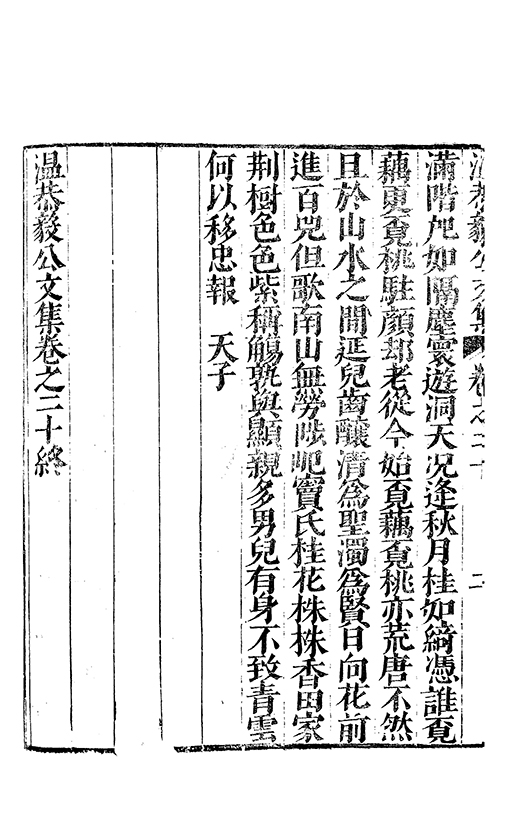 溫恭毅公文集 卷之二十 二
滿階戺如隔塵寰遊洞天况逢秋月桂如綺憑誰覓
藕更覓桃駐顏却老從今始覓藕覓桃亦荒唐不然
且於山水之間延兒齒釀清爲聖濁爲賢日向花前
進百兕但歌南山無勞陟屺竇氏桂花株株香田家
荆樹色色紫稱觴孰與顯親多男兒有身不致青雲
何以移忠報 天子
溫恭毅公文集卷之二十終